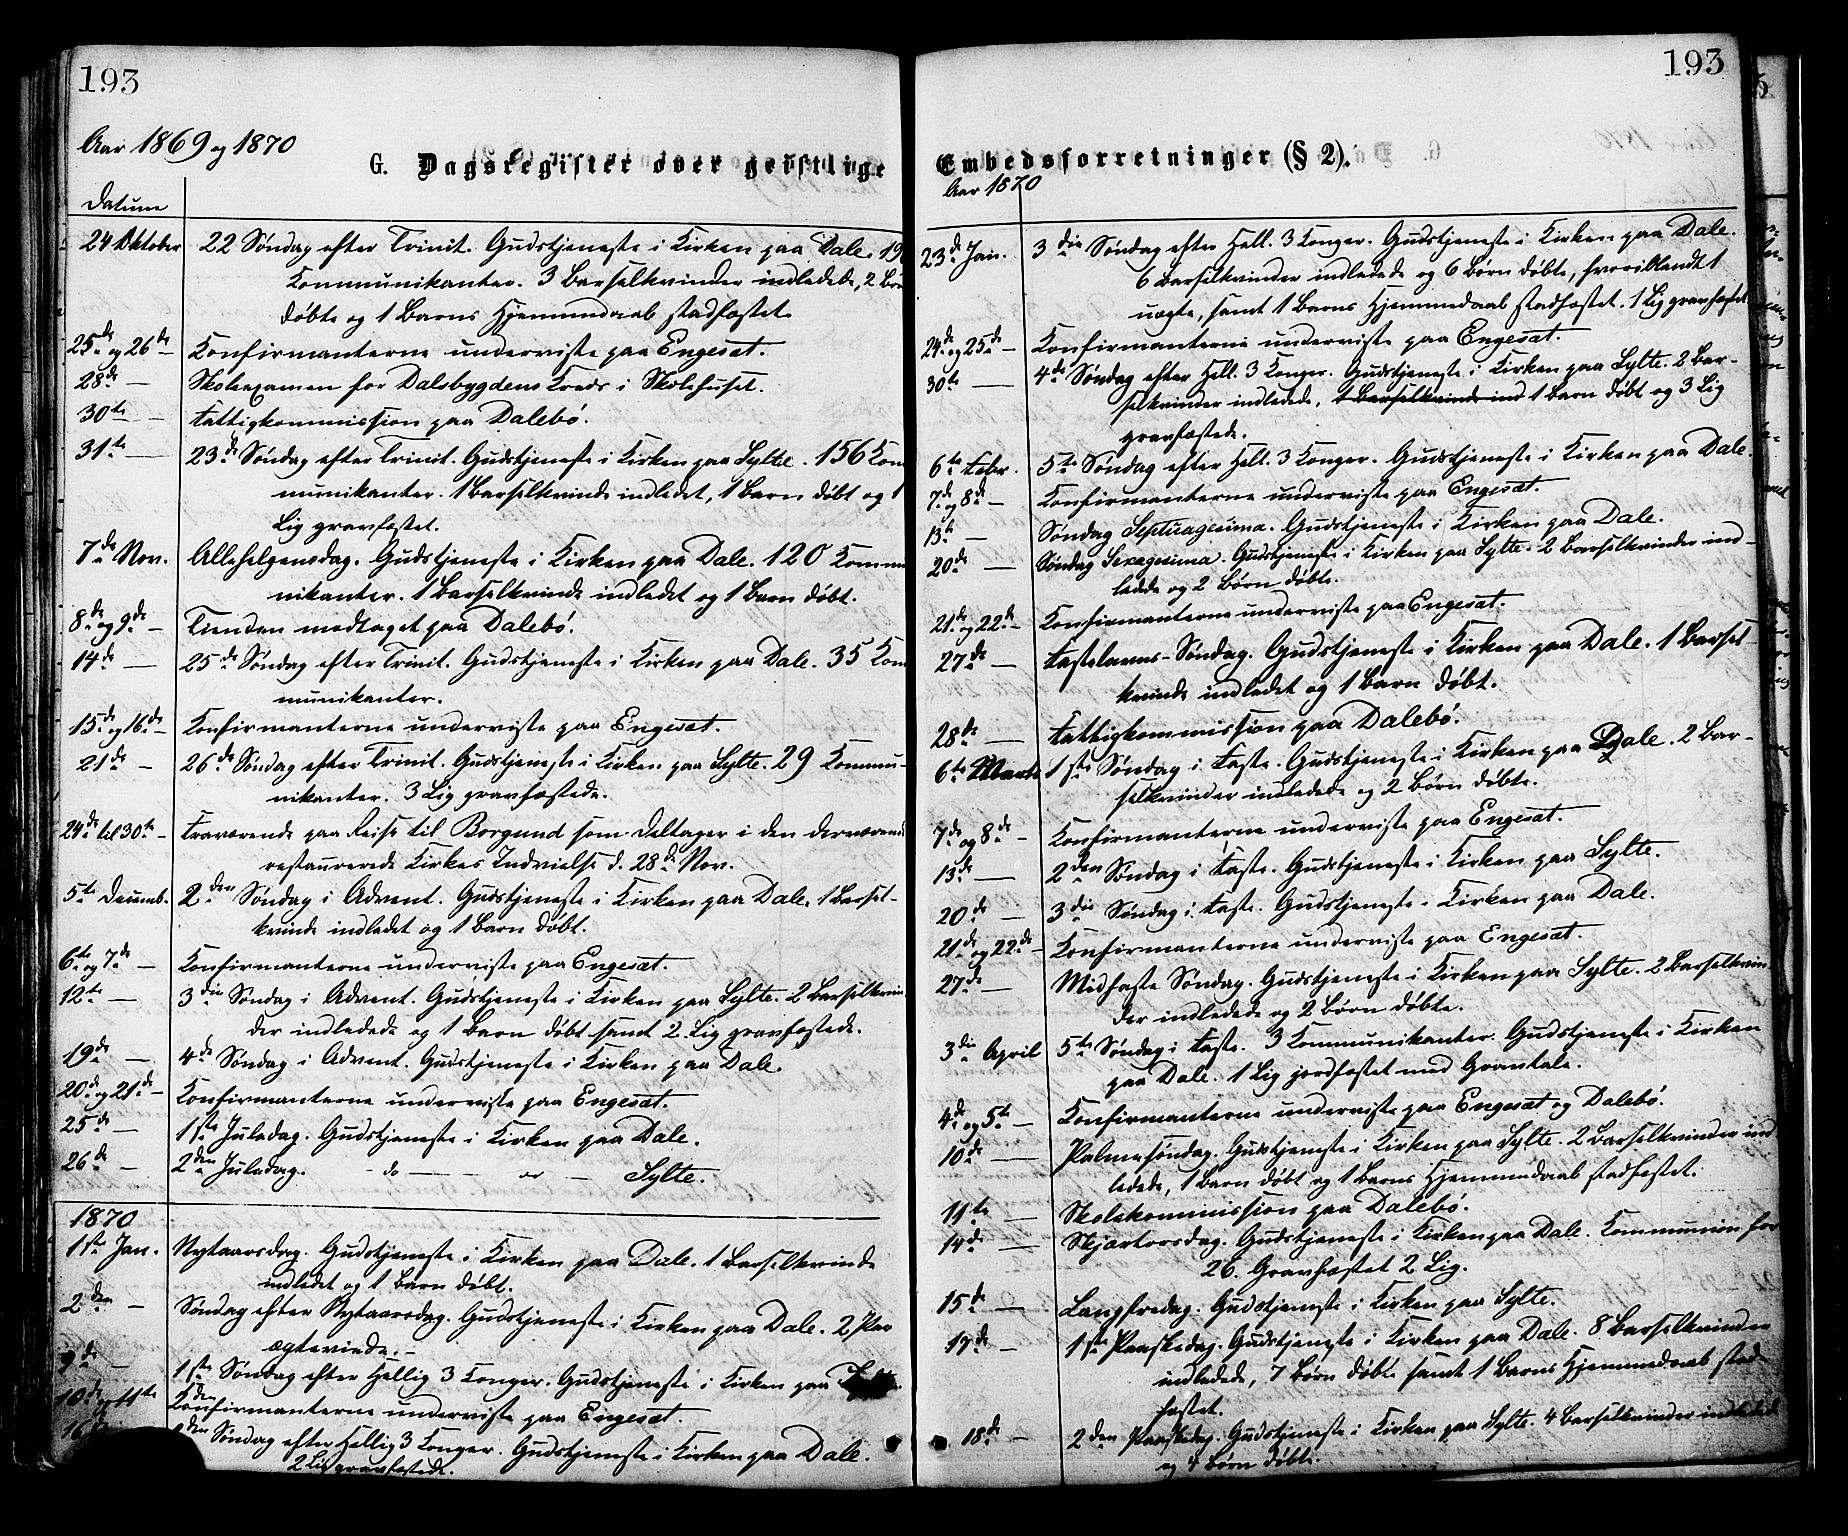 193
Aar 1869 og 1870
G. Dagsregister over geistlige
Datum
24 Oktober 22 Søndag efter Trinit. Gudstjeneste i Kirken paa Dale. 19
Kommunikanter. 3 Barselkvinder indledede, 2 Børn
døbte og 1 Barns Hjemmedaab stadfæstet.
25de og 26de — Konfirmanterne underviste paa Engesæt.
28de — Skoleexamen for Dalsbygdens Kreds i Skolehuset.
30te — Fattigkommission paa Dalebø.
31te — 23de Søndag efter Trinit. Gudstjeneste i Kirken paa Sylte. 156 Kom
munikanter. 1 Barselkvinde indledet, 1 Barn døbt og 1
Lig gravfæstet.
7de Nov. Allehelgensdag. Gudstjeneste i Kirken paa Dale. 120 Kommu
nikanter. 1 Barselkvinde indledet og 1 Barn døbt.
8de og 9de — Tienden modtaget paa Dalebø.
14de — 25de Søndag efter Trinit. Gudstjeneste i Kirken paa Dale. 35 Kom
munikanter.
15de og 16de — Konfirmanterne underviste paa Engesæt.
21de — 26de Søndag efter Trinit. Gudstjeneste i Kirken paa Sylte. 29 Kommu-
nikanter. 3 Lig gravfæstede.
24de til 30te — Fraværende paa Reise til Borgund som Deltager i den derværende
restaurerede Kirkes Indvielse d. 28de Nov.
5te Decemb. 2den Søndag i Advent. Gudstjeneste i Kirken paa Dale. 1 Barsel-
kvinde indledet og 1 Barn døbt.
6te og 7de — Konfirmanterne underviste paa Engesæt.
12te — 3die Søndag i Advent. Gudstjeneste i Kirken paa Sylte. 2 Barselkvin
der indledede og 1 Barn døbt samt 2 Lig gravfæstede.
19de — 4de Søndag i Advent. Gudstjeneste i Kirken paa Dale.
20de og 21de — Konfirmanterne underviste paa Engesæt.
25de — 1ste Juledag. Gudstjeneste i Kirken paa Dale.
26de — 2den Juledag. — do — — Sylte.
1870
1ste Jan. Nytaarsdag. Gudstjeneste i Kirken paa Dale. 1 Barselkvinde
indledet og 1 Barn døbt.
2den — Søndag efter Nytaarsdag. Gudstjeneste i Kirken paa Dale. 2 Par
ægteviede. —
9de — 1ste Søndag efter Hellig 3 Konger. Gudstjeneste i Kirken paa
10de og 11te Konfirmanterne underviste paa Engesæt.
16de 2den Søndag efter Hellig 3 Konger. Gudstjeneste i Kirken paa Dale.
2 Lig gravfæstede.
193
Embedsforretninger (§ 2).
Aar 1870
23de Jan. 3die Søndag efter Hell. 3 Konger. Gudstjeneste i Kirken paa Dale.
6 Barselkvinder indledede og 6 Børn døbte, hvoriblandt 1
uægte, samt 1 Barns Hjemmedaab stadfæstet. 1 Lig gravfæstet
24de og 25de — Konfirmanterne underviste paa Engesæt.
30te — 4de Søndag efter Hell. 3 Konger. Gudstjeneste i Kirken paa Sylte. 2 Bar-
selkvinder indledede, 1 Barselkvinde ind 1 Barn døbt og 3 Lig
gravfæstede.
6te Febr. 5te Søndag efter Hell. 3 Konger. Gudstjeneste i Kirken paa Dale.
7de og 8de — Konfirmanterne underviste paa Engesæt.
13te — Søndag Septuagesima. Gudstjeneste i Kirken paa Dale.
20de — Søndag Sexagesima. Gudstjeneste i Kirken paa Sylte. 2 Barselkvinder ind-
ledede og 2 Børn døbte.
21de og 22de — Konfirmanterne underviste paa Engesæt.
27de — Fastelavns-Søndag. Gudstjeneste i Kirken paa Dale. 1 Barsel
kvinde indledet og 1 Barn døbt.
28de — Fattigkommission paa Dalebø.
6te Marts 1ste Søndag i Faste. Gudstjeneste i Kirken paa Dale. 2 Bar-
selkvinder indledede og 2 Børn døbte.
7de og 8de — Konfirmanterne underviste paa Engesæt.
13de — 2den Søndag i Faste. Gudstjeneste i Kirken paa Sylte.
20de — 3die Søndag i Faste. Gudstjeneste i Kirken paa Dale.
21de og 22de — Konfirmanterne underviste paa Engesæt.
27de — Midfaste Søndag. Gudstjeneste i Kirken paa Sylte. 2 Barselkvin
der indledede og 2 Børn døbte.
3die April 5te Søndag i Faste. 3 Kommunikanter. Gudstjeneste i Kirken
paa Dale. 1 Lig jordfæstet med Gravtale.
4de og 5te — Konfirmanterne underviste paa Engesæt og Dalebø.
10de — Palmesøndag. Gudstjeneste i Kirken paa Sylte. 2 Barselkvinder ind
ledede, 1 Barn døbt og 1 Barns Hjemmedaab stadfæstet.
11te — Skolekommission paa Dalebø.
14de — Skjærtorsdag. Gudstjeneste i Kirken paa Dale. Kommunion for
26. Gravfæstet 2 Lig.
15de — Langfredag. Gudstjeneste i Kirken paa Sylte.
17de — 1ste Paaskedag. Gudstjeneste i Kirken paa Dale. 8 Barselkvinder
indledede, 7 Børn døbte samt 1 Barns Hjemmedaab stad
fæstet.
18de — 2den Paaskedag. Gudstjeneste i Kirken paa Sylte. 4 Barselkvinder indledede
og 4 Børn døbte.